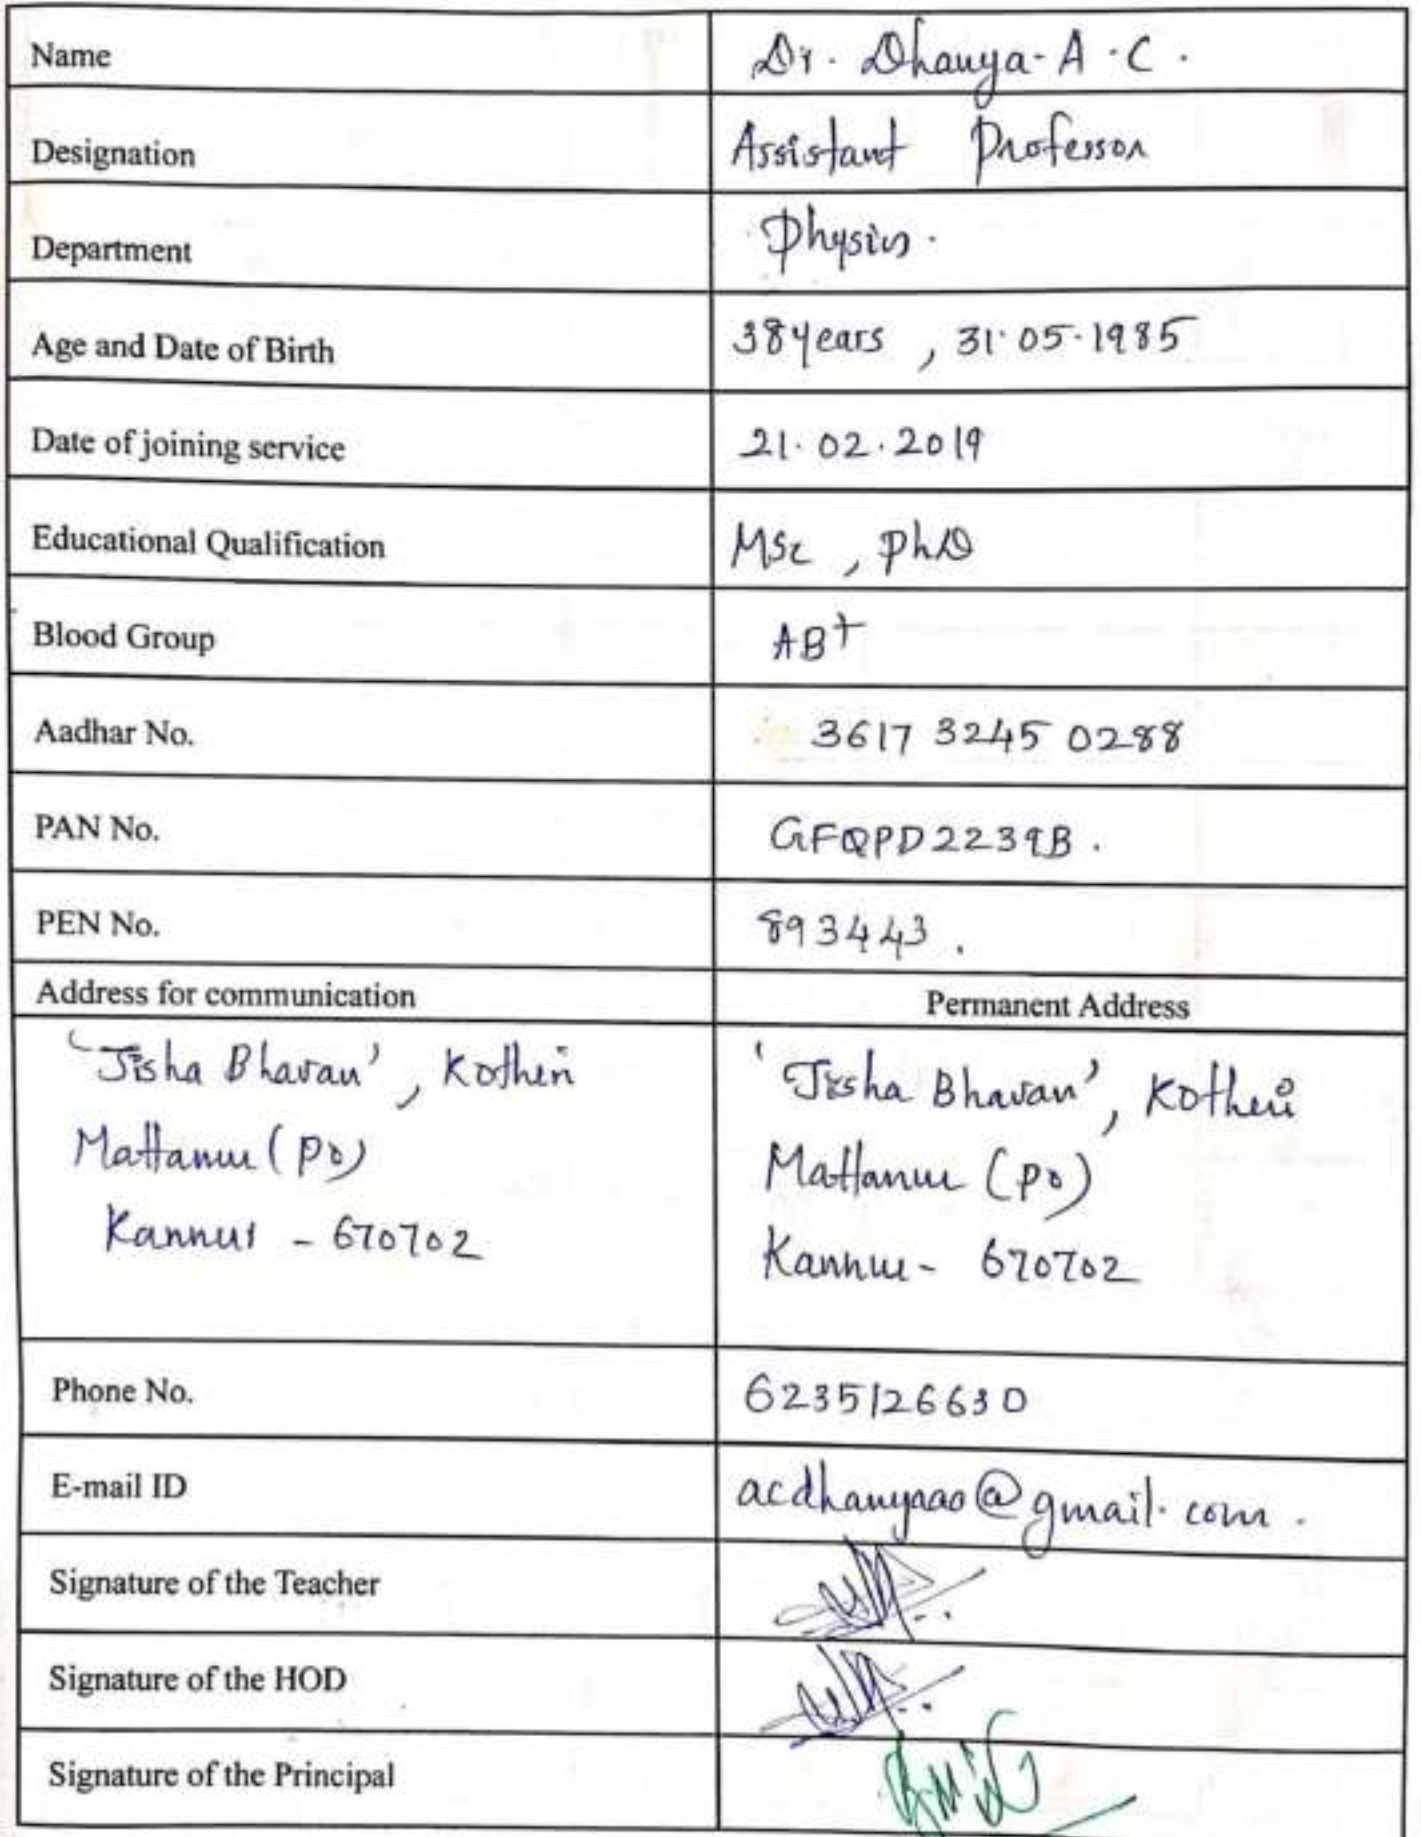 Name Dr. Dhanya. A. C.
Designation Assistant Professor
Department Physics.
Age and Date of Birth 38 years, 31.05.1985
Date of joining service 21.02.2019
Educational Qualification MSc, PhD
Blood Group AB+
Aadhar No. 3617 3245 0288
PAN No. GFQPD2239B.
PEN No. 893443.
Address for communication Permanent Address
'Jisha Bhavan', Kotheri
Mattanur (PO)
Kannur - 670702
'Jisha Bhavan', Kotheri
Mattanur (PO)
Kannur - 670702
Phone No. 6235126630
E-mail ID @gmail.com.
Signature of the Teacher
Signature of the HOD
Signature of the Principal